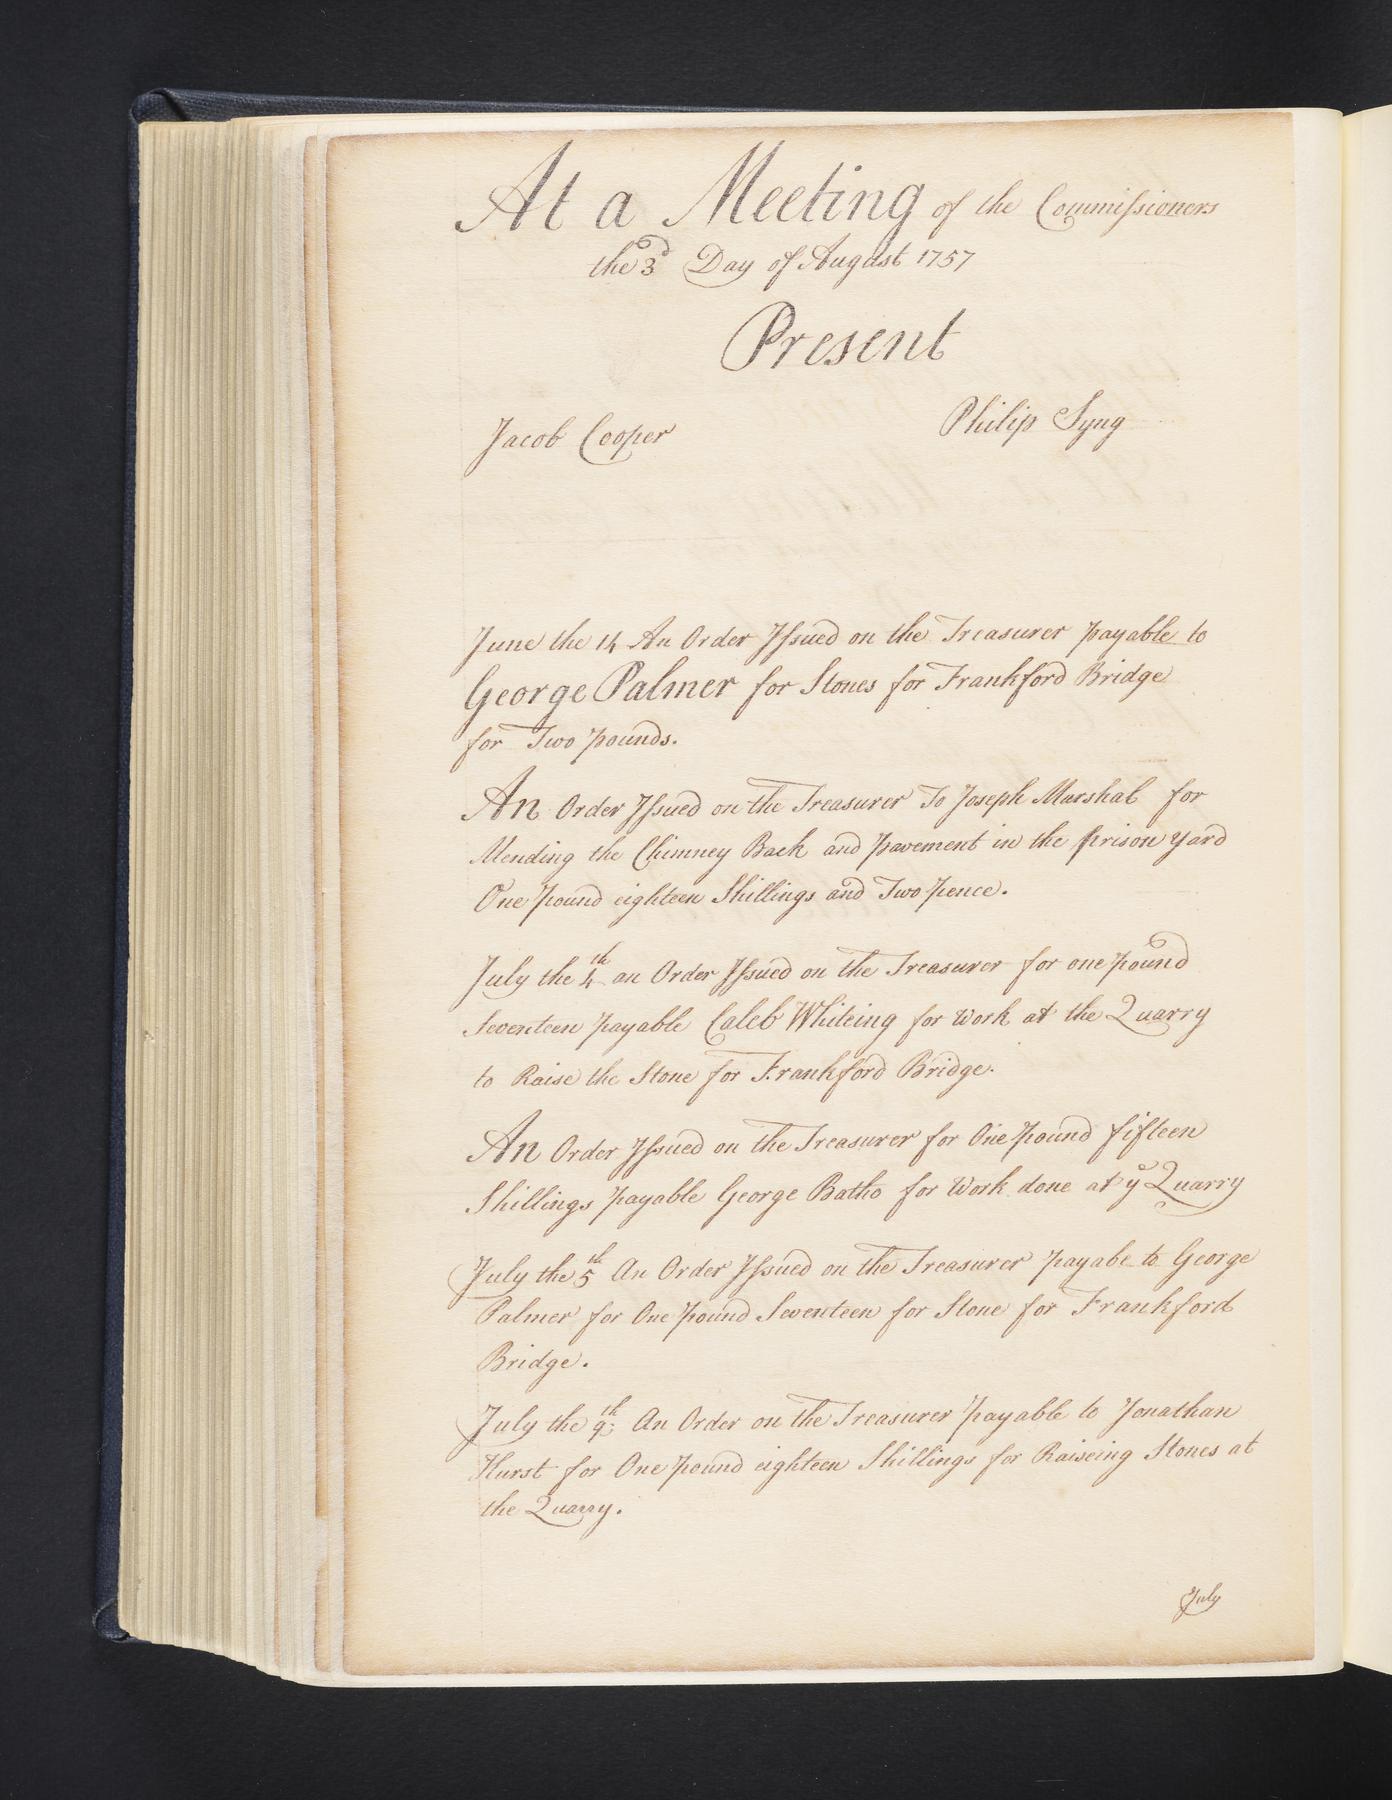 At a Meeting of the Commissioners
the 3d Day of August 1757
Present
Philip Syng
Jacob Cooper
June the 14 An Order Issued on the Treasurer payable to
George Palmer for Stones for Frankford Bridge
for Two pounds.
An Order Issued on the Treasurer To Joseph Marshal for
Mending the Chimney Back and pavement in the prison yard
One pound eighteen Shillings and Two pence.
July the 4th an Order Issued on the Treasurer for one pound
Seventeen payable Caleb Whiteing for Work at the Quarry
to Raise the Stone for Frankford Bridge.
An Order Issued on the Treasurer for One pound fifteen
Shillings payable George Batho for Work done at ye Quarry
July the 5th An Order Issued on the Treasurer payabe to George
Palmer for One pound Seventeen for Stone for Frankford
Bridge.
July the 9th: An Order on the Treasurer payable to Jonathan
Hurst for One pound eighteen Shillings for Raiseing Stones at
the Quarry.
July